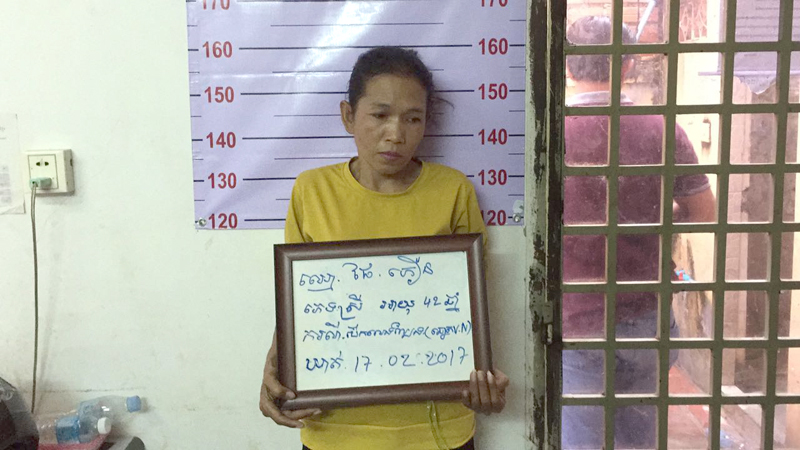 170 170
160 160
150 150
140 140
130 130
120 120
ឈ្មោះ. ផៃ. ភឿន
ភេទស្រី អាយុ 42 ឆ្នាំ
ករណី.
ឃាត់. 17. 02. 2017